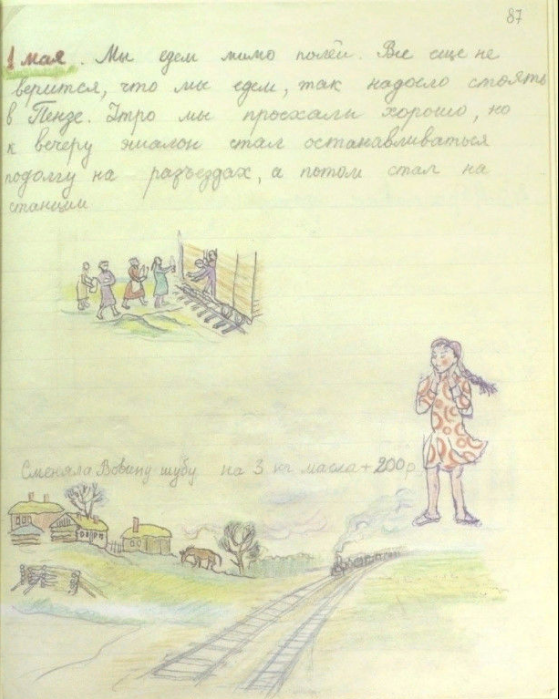 87
1 мая. Мы едем мимо полей. Все еще не
верится, что мы едем, так надоело стоять
в Пензе. Утро мы проехали хорошо, но
к вечеру эшалон стал останавливаться
подолгу на разъездах, а потом стал на
станции
Сменяла Вовину шубу на 3 кг масла + 200 р.